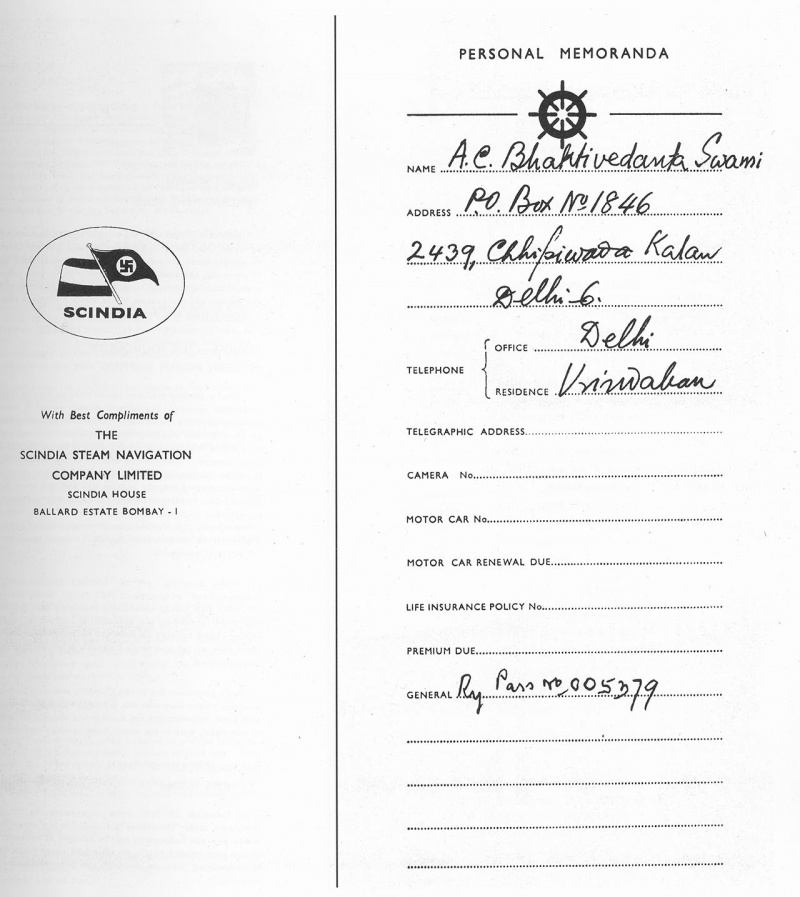 SCINDIA
With Best Compliments of
THE
SCINDIA STEAM NAVIGATION
COMPANY LIMITED
SCINDIA HOUSE
BALLARD ESTATE BOMBAY - 1
PERSONAL MEMORANDA
NAME A.C. Bhaktivedanta Swami
ADDRESS P.O. Box No 1846
2439, Chhipiwada Kalan
Delhi-6.
TELEPHONE
OFFICE Delhi
RESIDENCE Vrindaban
TELEGRAPHIC ADDRESS
CAMERA No.
MOTOR CAR No.
MOTOR CAR RENEWAL DUE
LIFE INSURANCE POLICY No.
PREMIUM DUE
GENERAL Ry Pass No 005379